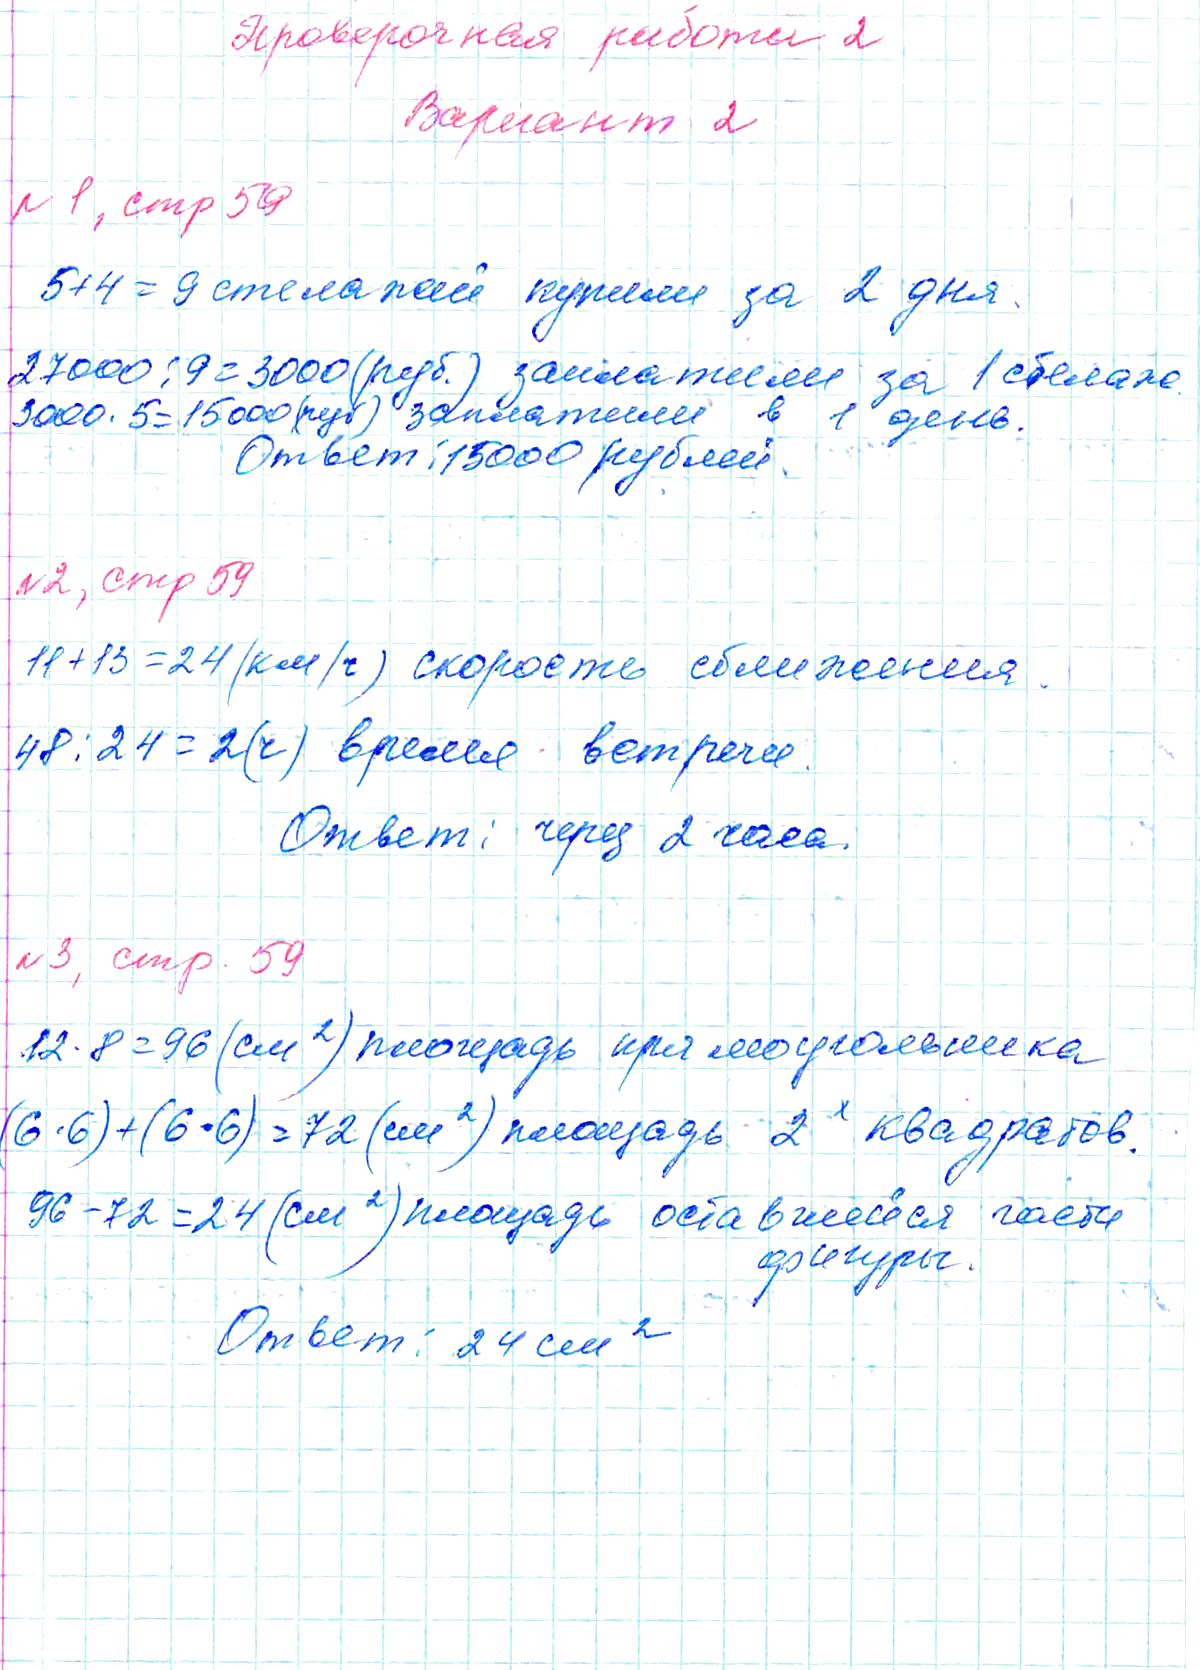 Проверочная работа 2
Вариант 2
№ 1, стр 59
5+4 = 9 стелажей купили за 2 дня.
27000 : 9 = 3000 (руб.) заплатили за 1 стелаж.
3000 · 5 = 15000 (руб) заплатили в 1 день.
Ответ: 15000 рублей.
№2, стр 59
11+13 = 24 (км/ч) скорость сближения.
48 : 24 = 2 (ч) время встречи.
Ответ: через 2 часа.
№3, стр. 59
12 · 8 = 96 (см²) площадь прямоугольника
(6 · 6) + (6 · 6) = 72 (см²) площадь 2х квадратов.
96 – 72 = 24 (см²) площадь оставшейся части
фигуры.
Ответ: 24 см²